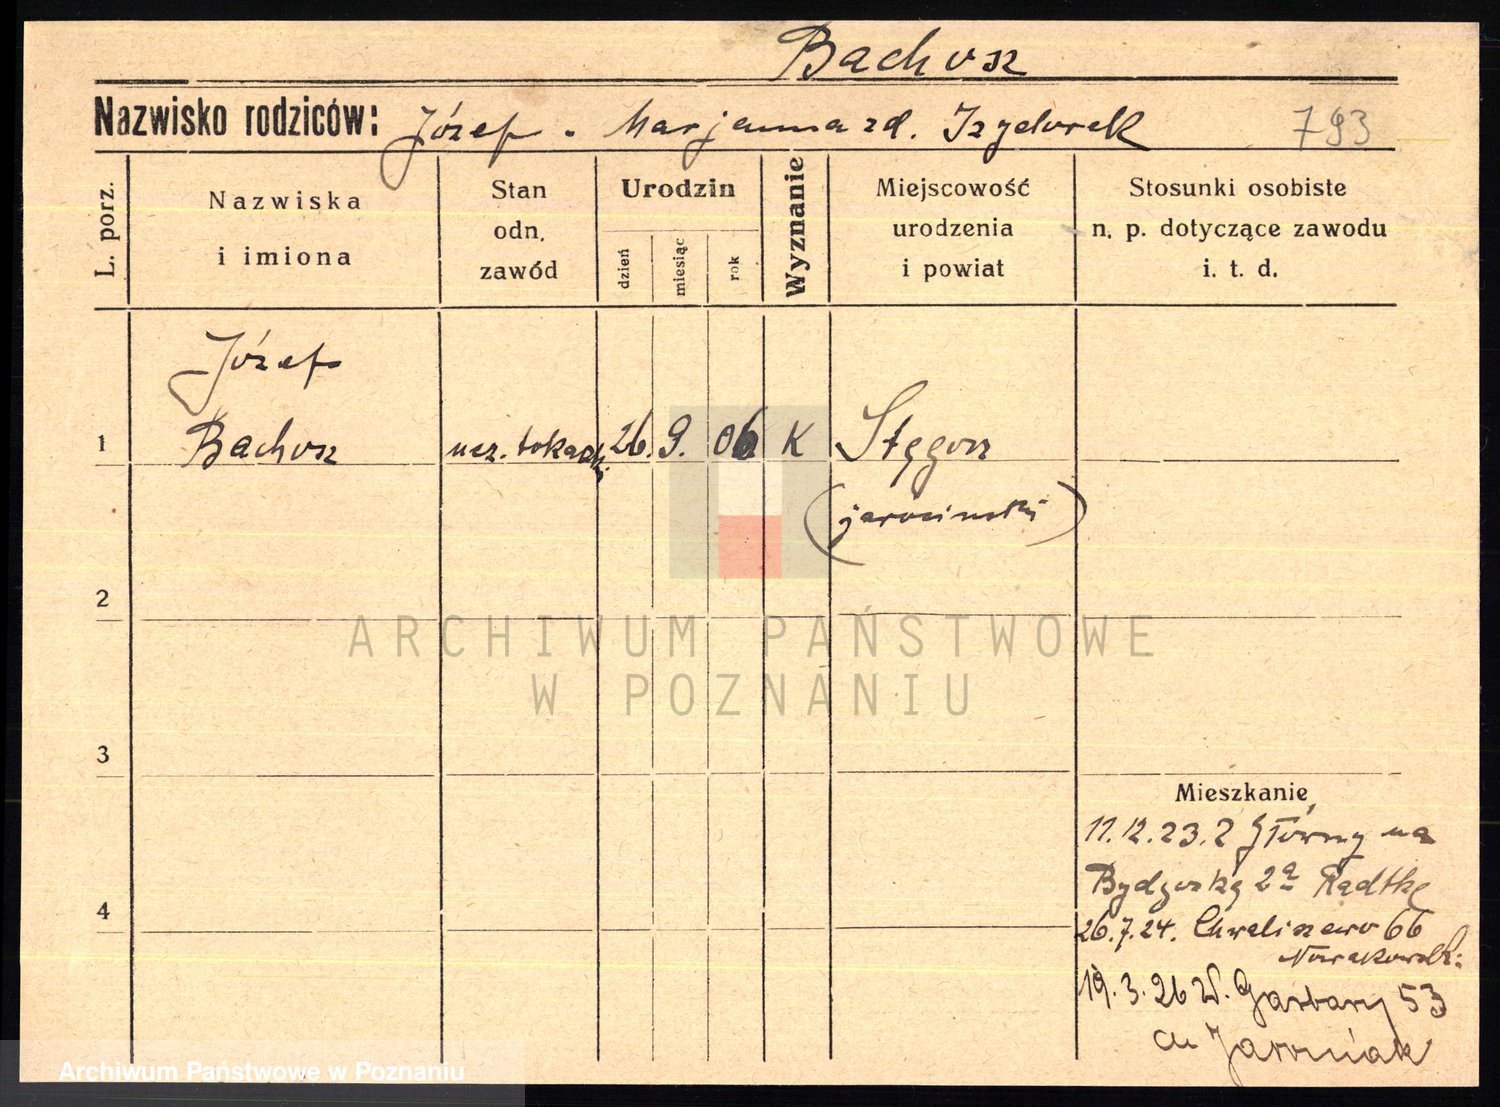 Bachosz
Nazwisko rodziców: Józef - Marjanna zd. Izydorek 793
L. porz.
Nazwiska
i imiona
Stan
odn.
zawód
Urodzin
dzień
miesiąc
rok
Wyznanie
Miejscowość
urodzenia
i powiat
Stosunki osobiste
n. p. dotyczące zawodu
i. t. d.
Józef
1 Bachosz ucz. tokarski 26. 9. 06 K Stęgosz
(jarociński)
2
3
4
Mieszkanie
11.12.23. z Główny na
Bydgoską 2a Radtke
26.7.24. Chwaliszewo 66
Nowakowsk:
19.3.26 W. Garbary 53
Archiwum Państwowe w Poznaniu
ARCHIWUM PAŃSTWOWE
W POZNANIU